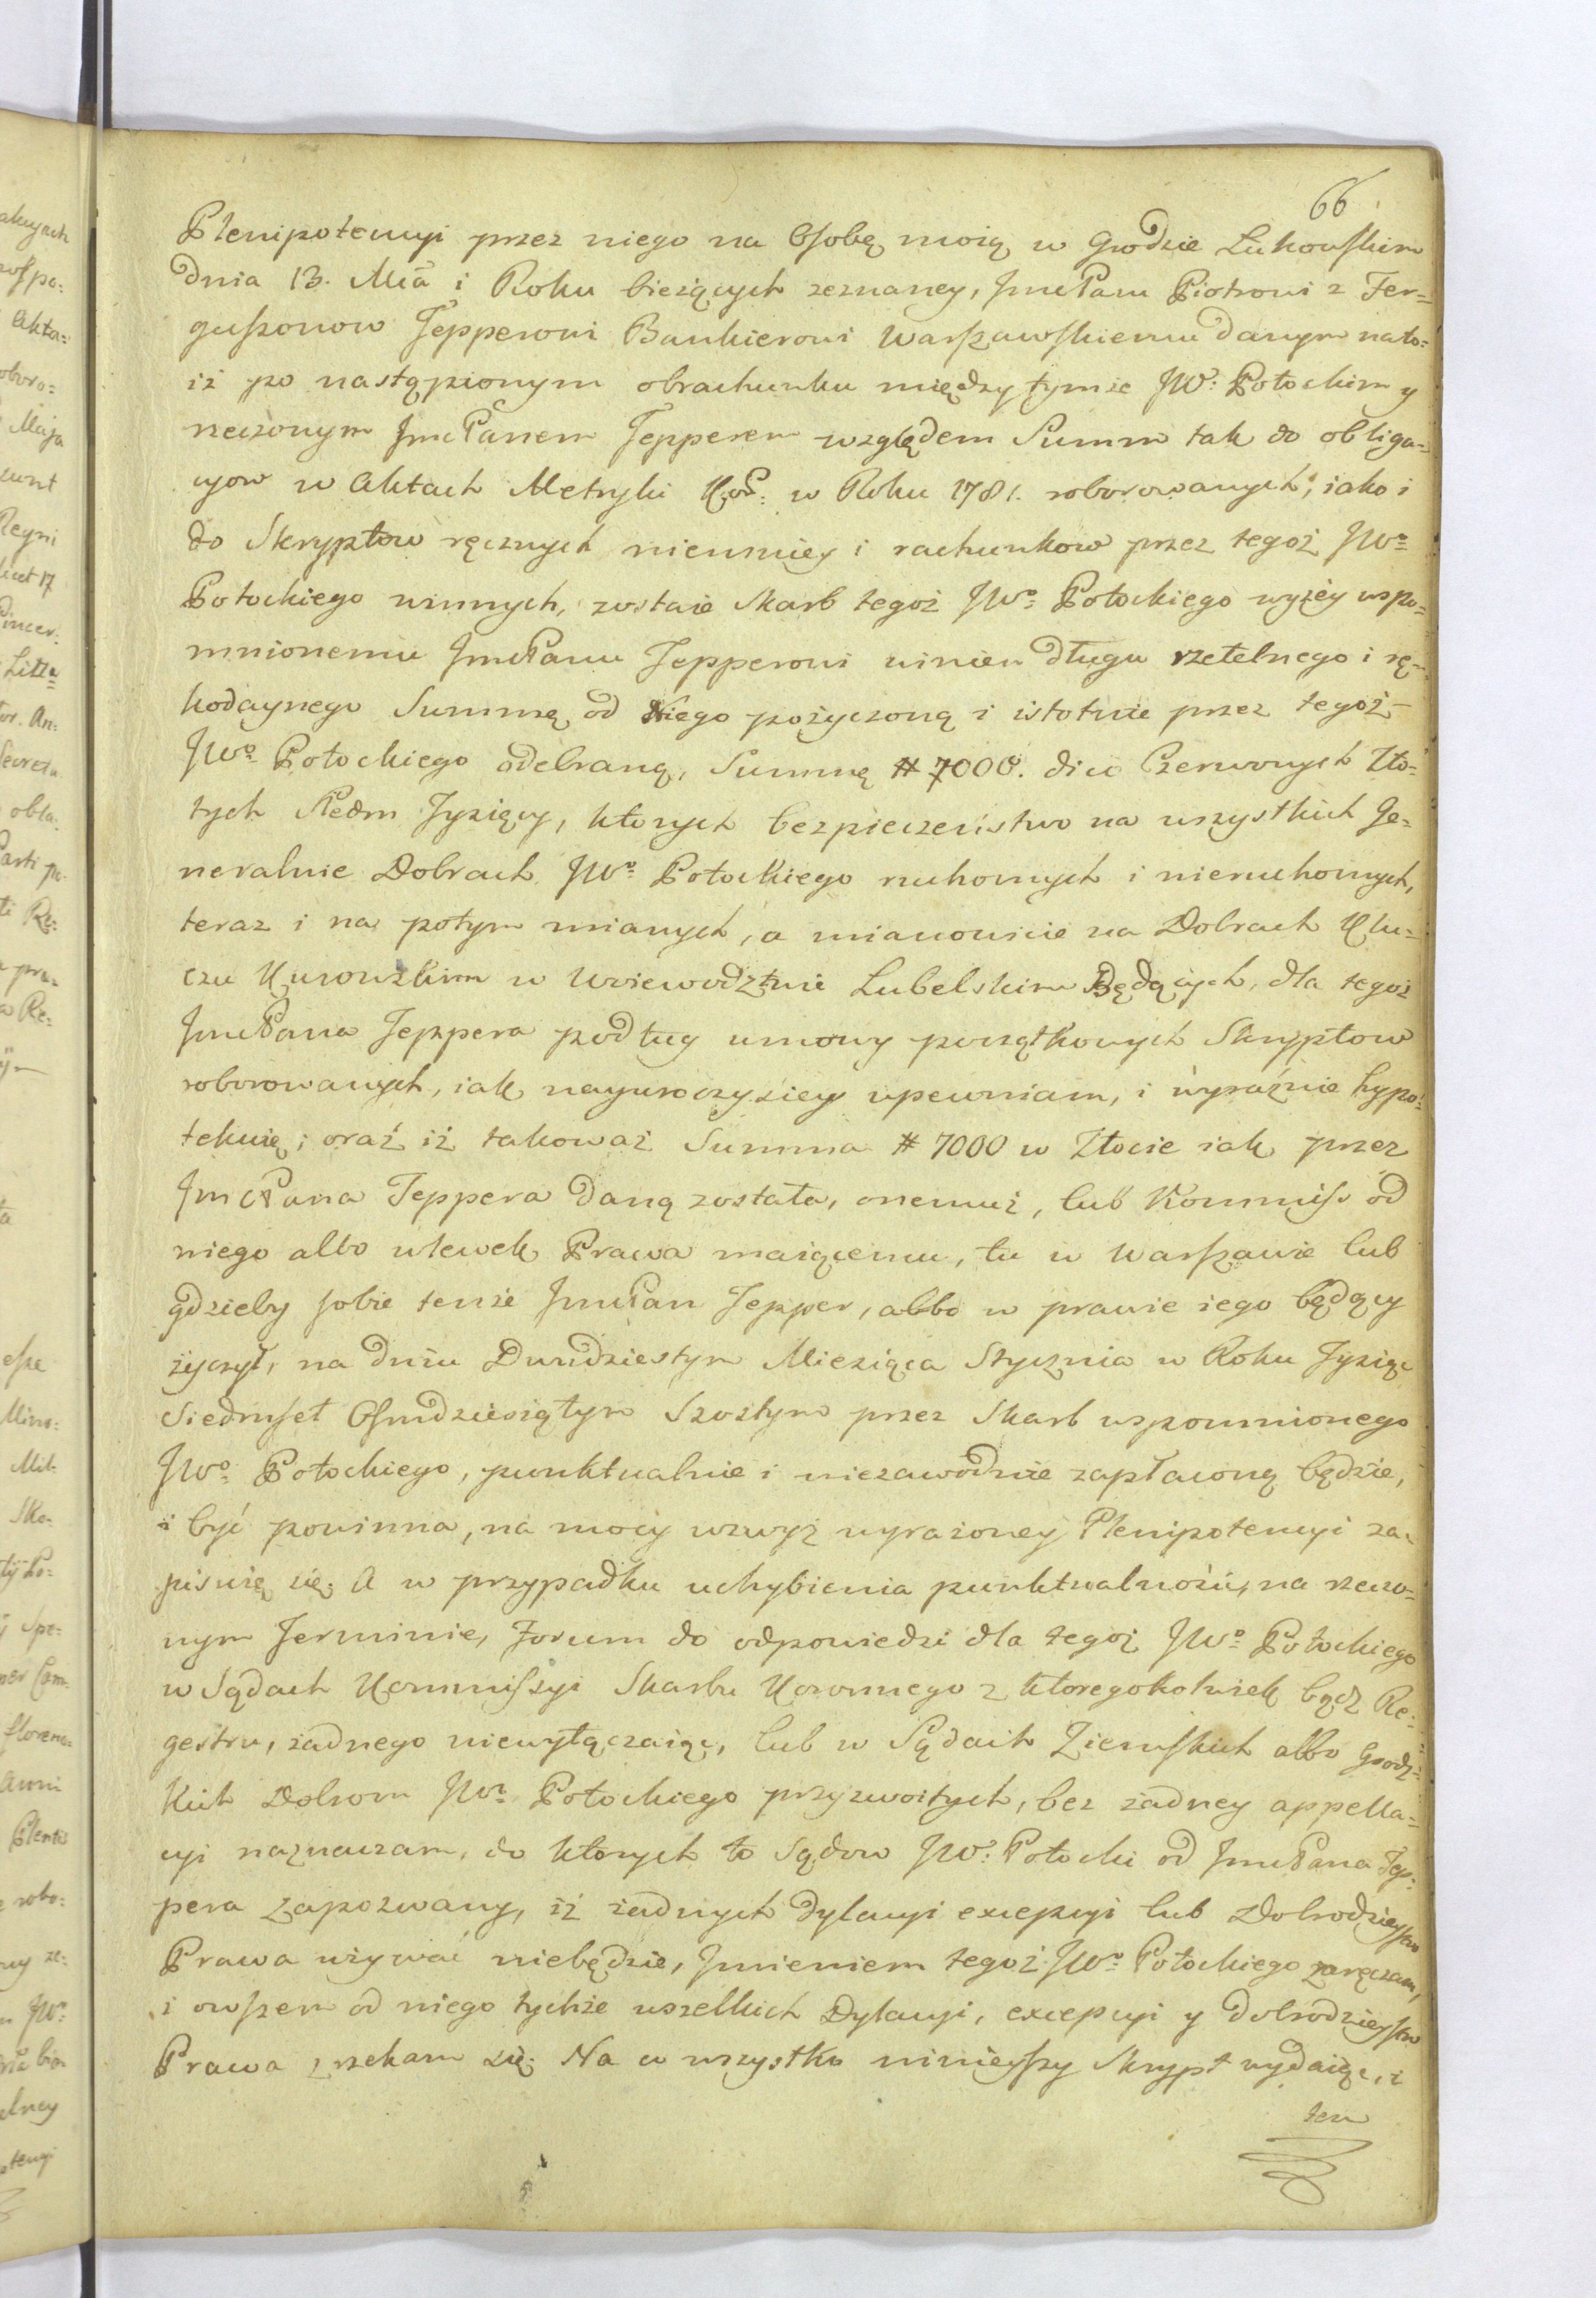 66
Plenipotencyi przez niego na Osobę moią w Grodzie Łukowskim
dnia 13. Mca i Roku bieżących zeznaney, JmcPanu Piotrowi z Fer-
guszonow Tepperowi Bankierowi Warszawskiemu danym na to=
iż po nastąpionym obrachunku między tymże JW: Potockim y
rzeczonym JmcPanem Tepperem względem Summ tak do obliga-
cyow w Aktach Metryki Kor: w Roku 1781. roborowanych, iako i
do Skryptow ręcznych niemniey i rachunkow przez tegoż JWo
Potockiego winnych, zostaie Skarb tegoż JWo Potockiego wyżey wspo=
mnionemu JmcPanu Tepperowi winien długu rzetelnego i rę-
kodaynego Summę od Niego pożyczoną i istotnie przez tegoż
JWo Potockiego odebraną, Summę # 7000. dico Czerwonych Zło-
tych Siedm Tysięcy, ktorych bezpieczeństwo na wszystkich Ge-
neralnie Dobrach JWo Potockiego ruchomych i nieruchomych,
teraz i na potym mianych, a mianowicie na Dobrach Klu-
czu Kurowskim w Woiewodztwie Lubelskim Będących, dla tegoż
JmcPana Teppera podług umowy początkowych Skryptow
roborowanych, iak nayuroczyściey upewniam, i wyraźnie hypo-
tekuię; oraź iż takoważ Summa # 7000 w Złocie iak przez
JmcPana Teppera daną została, onemuż, lub Kommiss od
niego albo wlewek Prawa maiącemu, tu w Warszawie lub
gdzieby sobie tenże JmcPan Tepper, albo w prawie iego będący
życzył, na dniu Dwudziestym Miesiąca Stycznia w Roku Tysiąc
Siedmset Osmdziesiątym Szostym przez Skarb wspomnionego
JWo Potockiego, punktualnie i niezawodnie zapłaconą będzie,
i być powinna, na mocy wzwyż wyrażoney Plenipotencyi za-
pisuię się. A w przypadku uchybienia punktualności, na rzeczo-
nym Terminie, Forum do odpowiedzi dla tegoż JWo Potockiego
w Sądach Kommissyi Skarbu Koronnego z ktoregokolwiek bądź Re-
gestru, żadnego niewyłączaiąc, lub w Sądach Ziemskich albo Grodz-
kich Dobrom JWo Potockiego przyzwoitych, bez żadney appella-
cyi naznaczam, do ktorych to Sądow JW: Potocki od JmcPana Tep-
pera zapozwany, iż żadnych dylacyi excepcyi lub Dobrodzieystw
Prawa używać niebędzie, Jmieniem tegoż JWo Potockiego zaręczam,
i owszem od niego tychże wszelkich Dylacyi, excepcyi y dobrodzieystw
Prawa zrzekam się. Na co wszystko ninieyszy Skrypt wydaiąc, i
ten